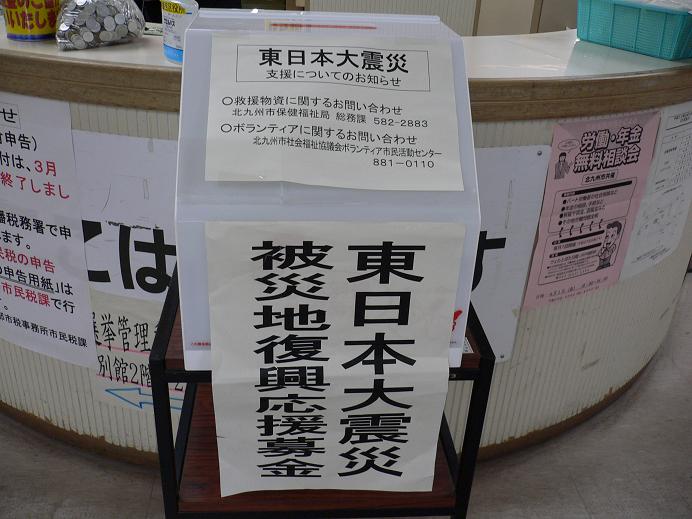 東日本大震災
支援についてのお知らせ
○救援物資に関するお問い合わせ
北九州市保健福祉局 総務課 582-2883
○ボランティアに関するお問い合わせ
北九州市社会福祉協議会ボランティア市民活動センター
881-0110
東日本大震災
被災地復興応援募金
せ
申告)
付は、3月
終了しまし
税務署で申
ます。
民税の申告
の申告用紙」は
市民税課で行
部市税事務所市民税課
こは
す
選挙管理
別館2階
労働・年金
無料相談会
北九州市共催